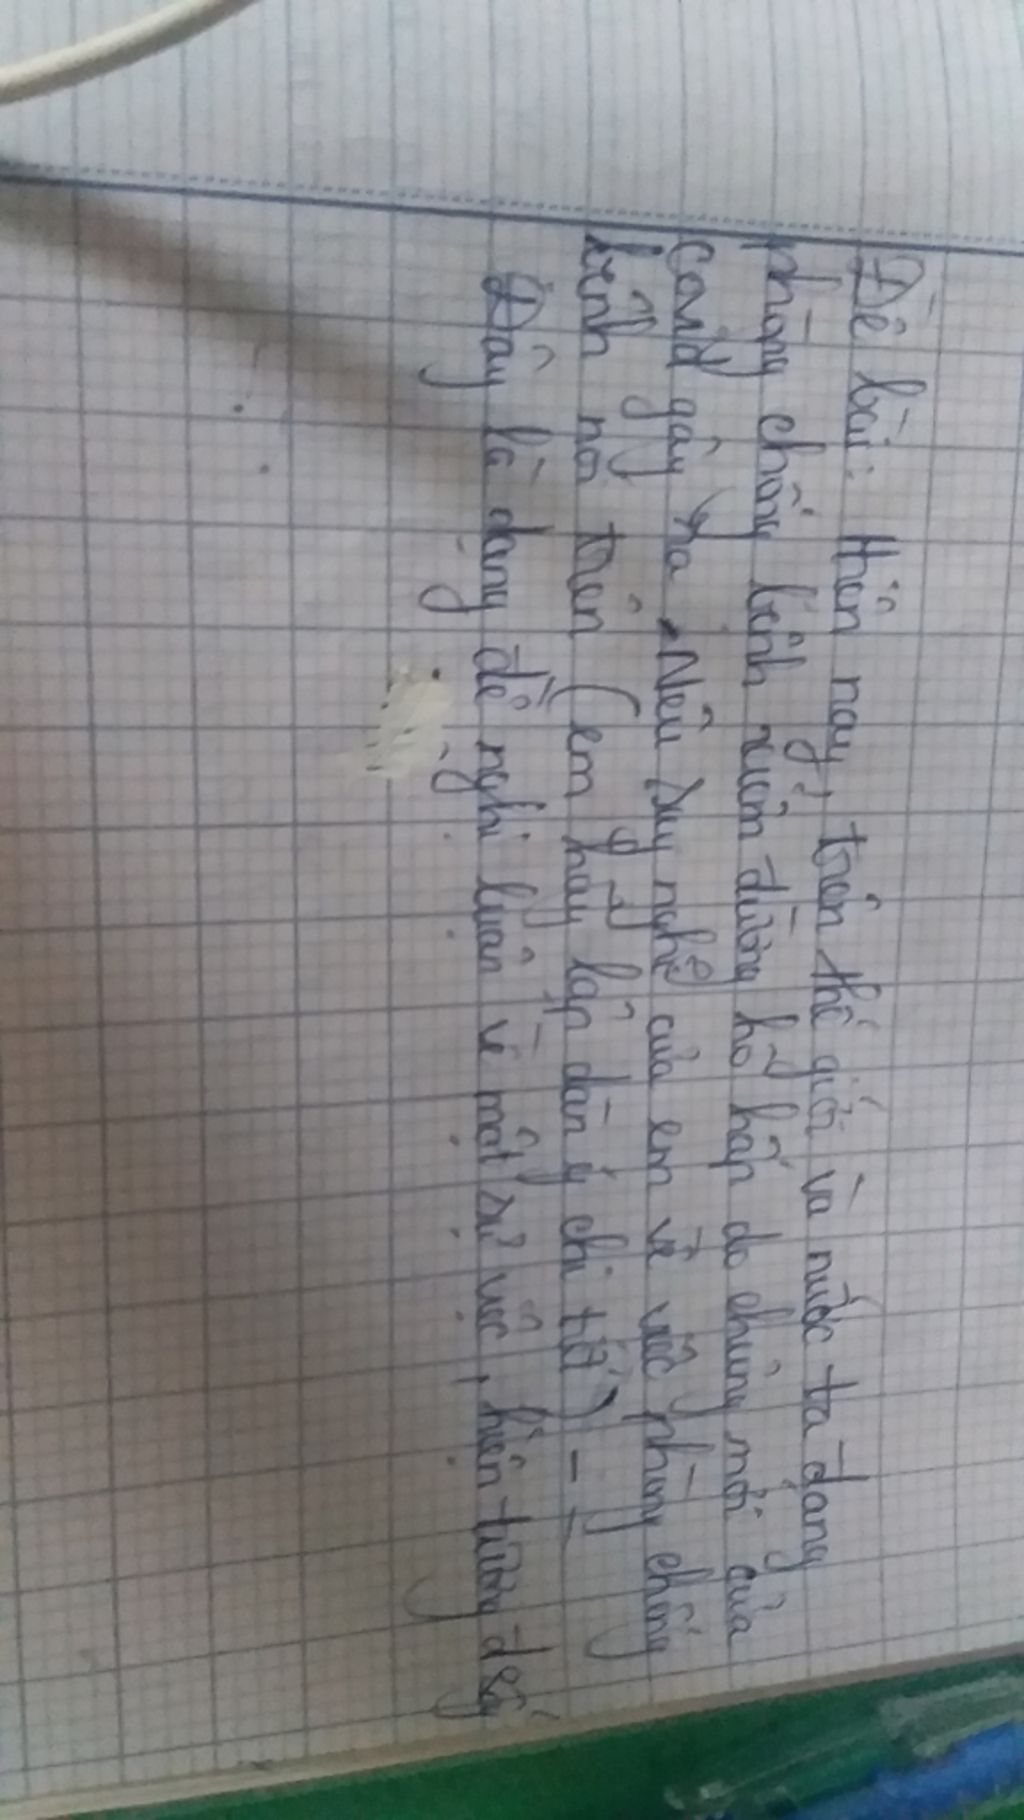 Đề bài: Hiện nay, trên thế giới và nước ta đang
phòng chống bệnh viêm đường hô hấp do chủng mới của
covid gây ra. Nêu suy nghĩ của em về việc phòng chống
bệnh nói trên (em hãy lập dàn ý chi tiết) - -
Đây là dạng đề nghị luận về một sự việc, hiện tượng đấy